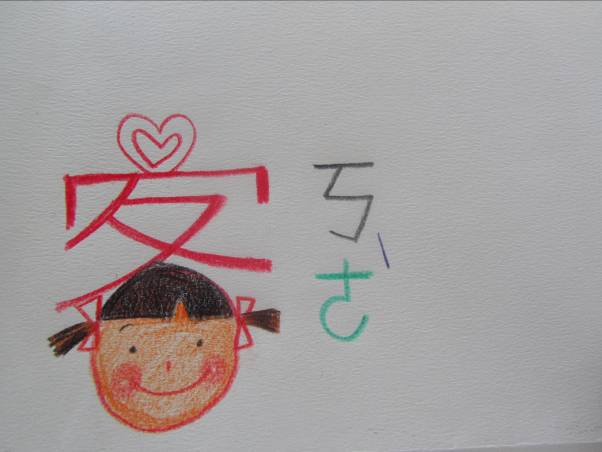 客 ㄎㄜˋ